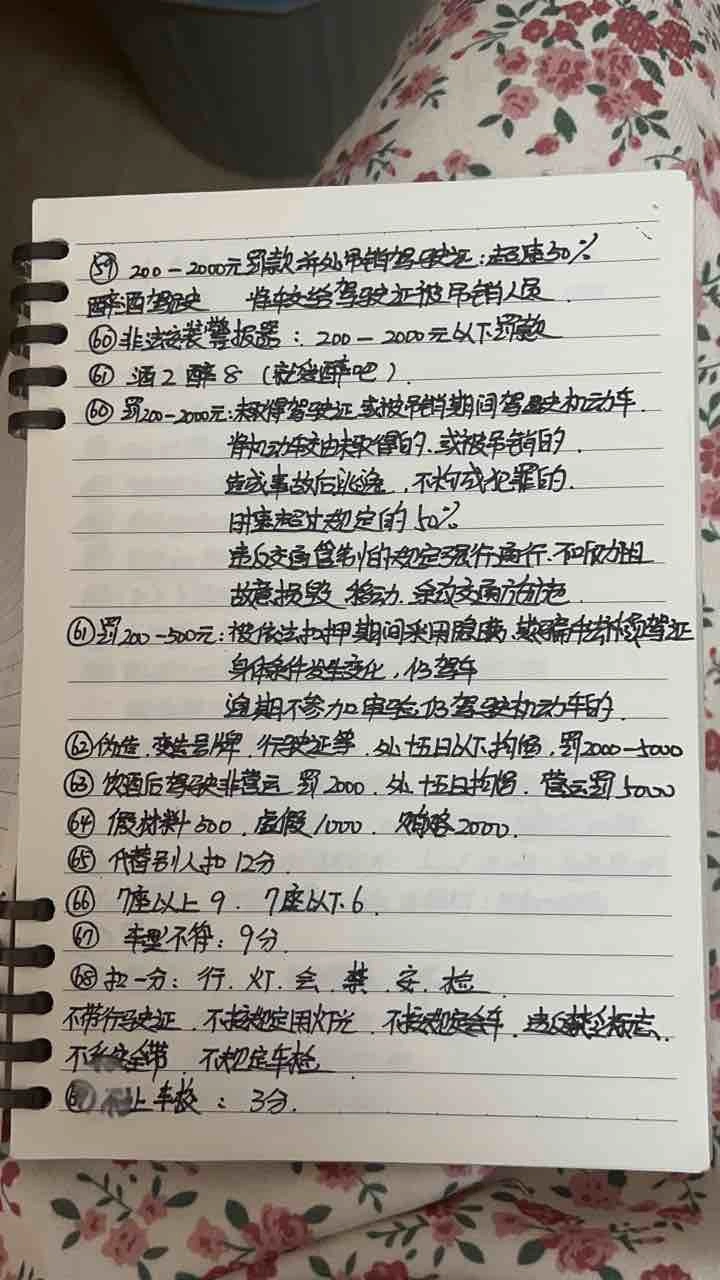 59 200-2000元罚款并处吊销驾驶证：超速50%
醉酒驾驶 将车交给驾驶证被吊销人员
60 非法安装警报器：200-2000元以下罚款
61 酒2 醉8（就爱醉吧）.
60 罚200-2000元：未取得驾驶证或被吊销期间驾驶机动车.
将机动车交由未取得的、或被吊销的.
造成事故后逃逸，不构成犯罪的.
时速超过规定的50%
违反交通管制的规定强行通行、不听劝阻
故意损毁、移动、涂改交通设施
61 罚200-500元：被依法扣押期间采用隐瞒、欺骗手法补领驾证
身体条件发生变化，仍驾车
逾期不参加审验仍驾驶机动车的.
62 伪造、变造号牌、行驶证等，处十五日以下拘留，罚2000-5000
63 饮酒后驾驶非营运 罚2000，处十五日拘留，营运罚5000
64 假材料500，虚假1000，贿赂2000.
65 代替别人扣12分.
66 7座以上9. 7座以下6.
67 车型不符：9分.
68 扣一分：行、灯、会、禁、安、检
不带行驶证、不按规定用灯光、不按规定会车、违反禁令标志、
不系安全带、不规定车检.
上车校：3分.